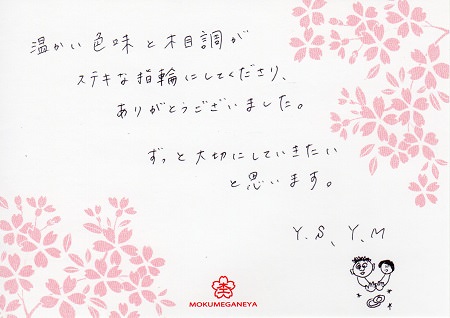 温かい色味と木目調が
ステキな指輪にしてくださり、
ありがとうございました。
ずっと大切にしていきたい
と思います。
Y.S、Y.M
MOKUMEGANEYA